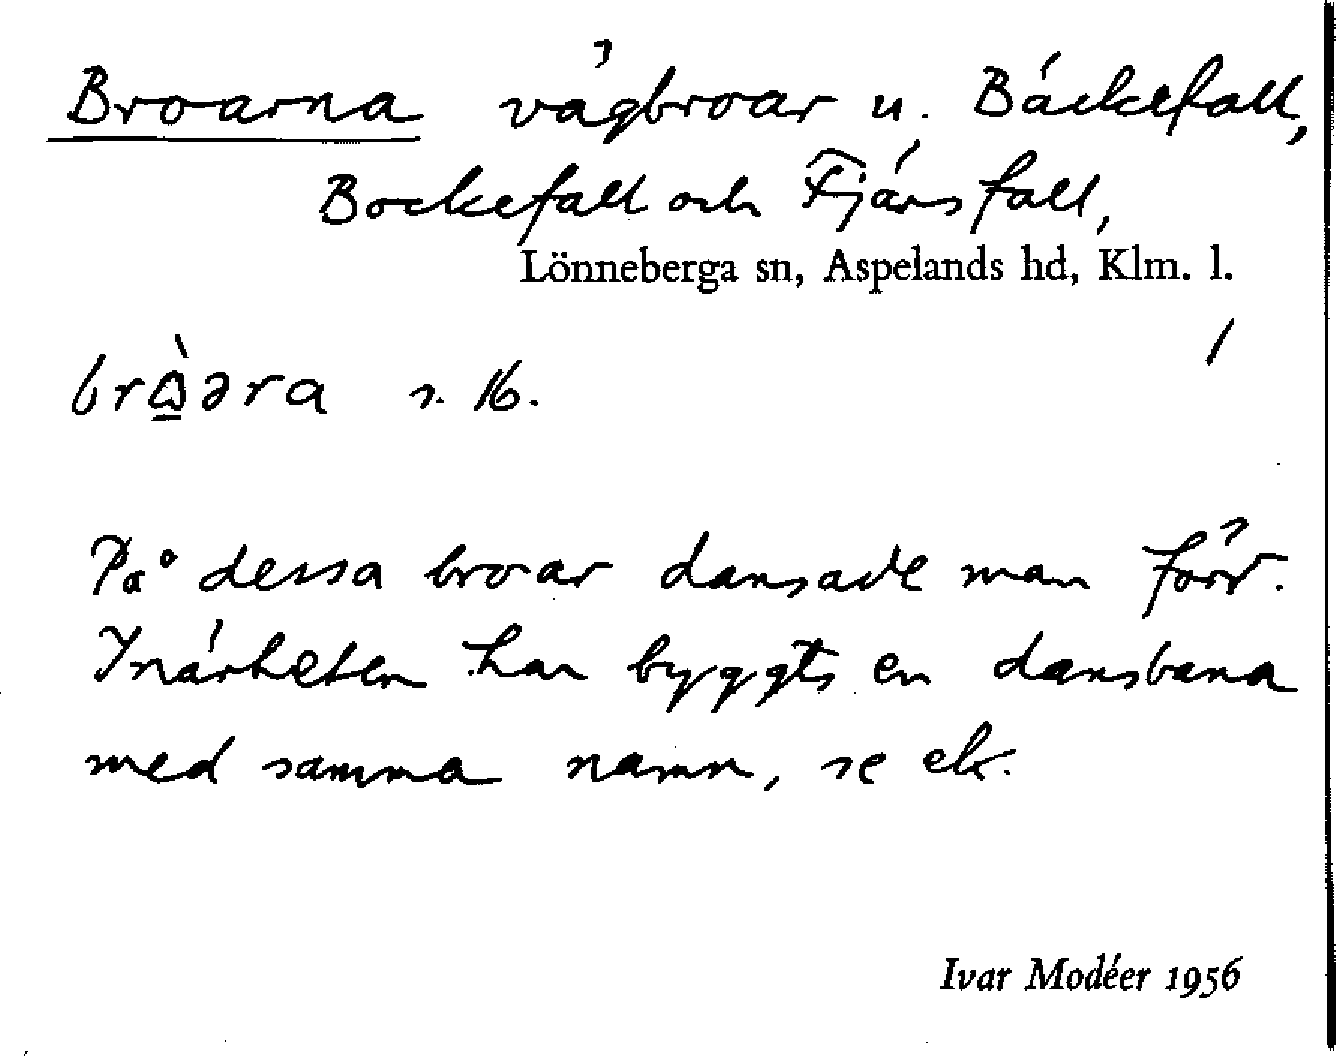 Broarna vägbroar u. Bäckefall,
Bockefall och Fjärsfall,
Lönneberga sn, Aspelands hd, Klm. l.
s. 16.
På dessa broar dansade man förr.
I närheten har byggts en dansbana
med samma namn, se ek.
Ivar Modéer 1956